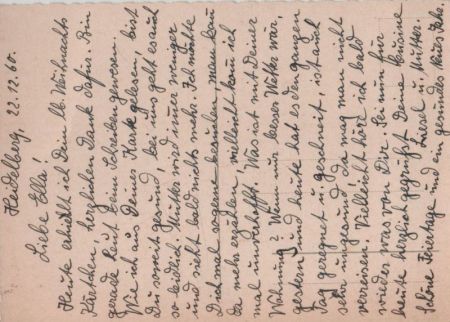 Heidelberg, 22.12.60.
Liebe Ella!
Heute erhielt ich Dein lb. Weihnachts
Kärtchen, herzlichen Dank dafür. Bin
gerade heut beim Schreiben gewesen.
Wie ich aus Deiner Karte gelesen, bist
Du soweit gesund, bei uns geht es auch
so leidlich. Mutter wird immer weniger
und sieht bald nichts mehr. Ich möchte
Dich mal so gerne besuchen, man kann
da mehr erzählen, vielleicht kann ich
mal unverhofft. Was ist mit Deiner
Wohnung? Wenn nur besser Wetter wär,
gestern und heute hat es den ganzen
Tag geregnet u. geschneit, ist auch
sehr ungesund. Da mag man nicht
verreisen. Vielleicht hör ich bald
wieder was von Dir. Sei nun für
heute herzlich gegrüßt Deine Kusine
Liesel u. Mutter.
Schöne Feiertage und ein gesundes Neues Jahr.